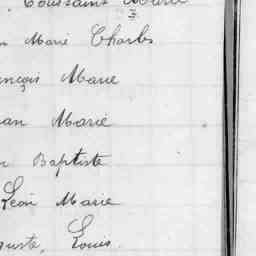 Toussaint Marie
3
n Marie Charles
ançois Marie
an Marie
n Baptiste
Léon Marie
guste, Louis.